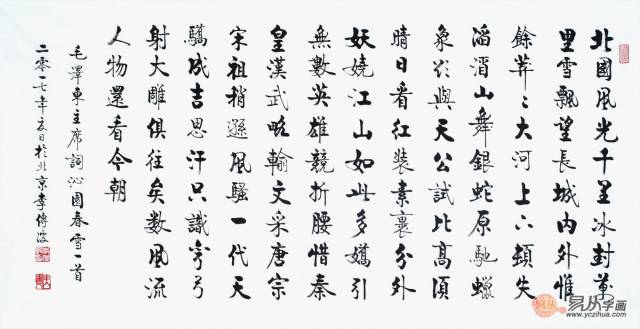 北國風光千里冰封萬
里雪飄望長城內外惟
餘莽〻大河上下頓失
滔滔山舞銀蛇原馳蠟
象欲與天公試比高須
晴日看紅裝素裹分外
妖嬈江山如此多嬌引
無數英雄競折腰惜秦
皇漢武略輸文采唐宗
宋祖稍遜風騷一代天
驕成吉思汗只識彎弓
射大雕俱往矣數風流
人物還看今朝
毛澤東主席詞沁園春雪一首
二零一七年夏日於北京李傳波
易从字画
www.yczihua.com